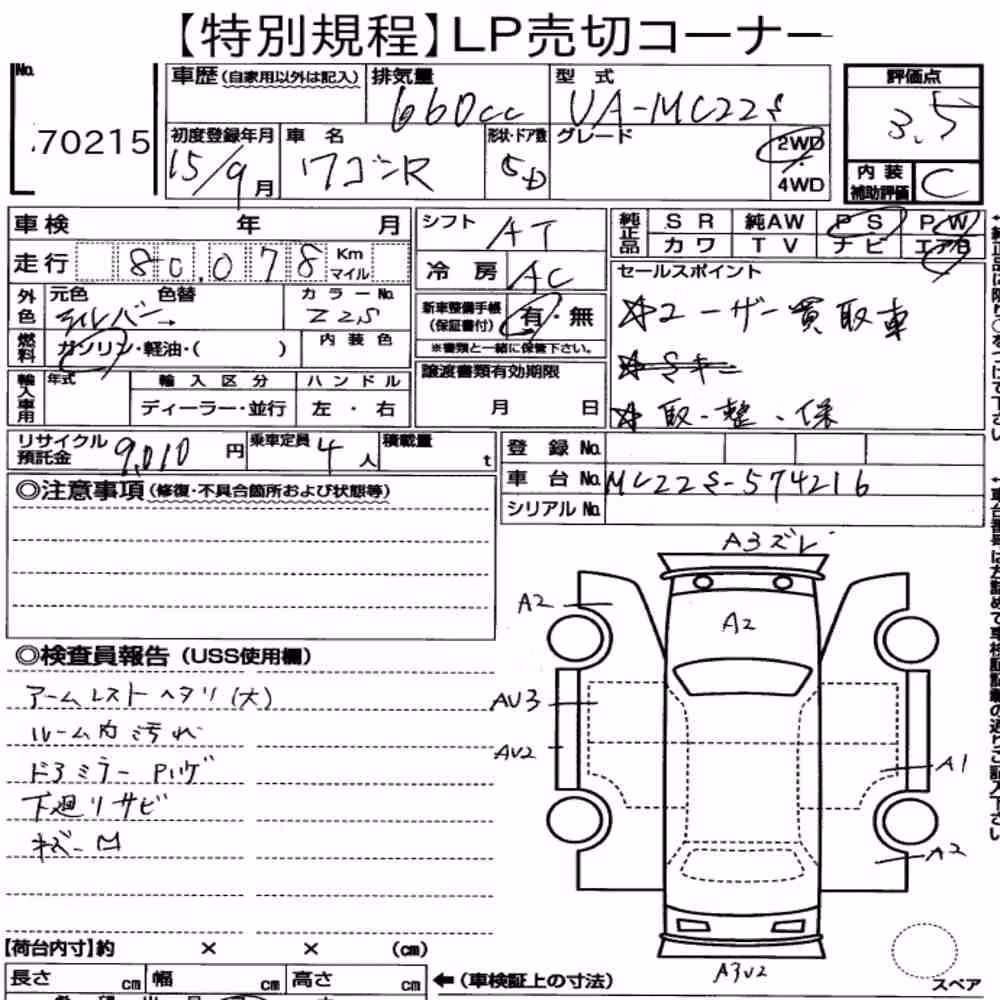 【特別規程】LP売切コーナー
No. 70215
車歴(自家用以外は記入) 排気量 660cc 型式 UA-MC22S 評価点 3.5
初度登録年月 15/9月 車名 ワゴンR 形状・ドア数 5D グレード 2WD 4WD 内装補助評価 C
車検 年 月
走行 80,078 Km マイル
外色 元色 色替 シルバー→ カラーNo. Z2S
燃料 ガソリン・軽油・( ) 内装色
輸入車用 年式 輸入区分 ハンドル
ディーラー・並行 左・右
シフト AT
冷房 AC
新車整備手帳(保証書付) 有・無
※書類と一緒に保管下さい。
譲渡書類有効期限
月 日
純正品 SR 純AW PS PW
カワ TV ナビ エアB
セールスポイント
☆ユーザー買取車
☆Sキー
☆取・整・保
リサイクル預託金 9,010円 乗車定員 4人 積載量 t
登録No.
車台No. MC22S-574216
シリアルNo.
◎注意事項(修復・不具合箇所および状態等)
◎検査員報告(USS使用欄)
アームレストヘタリ(大)
ルーム内汚れ
ドアミラーPハゲ
下廻りサビ
キズ、凹
A3ズレ
A2
A2
AV3
AV2
A1
A2
A3V2
スペア
【荷台内寸】約 × × (cm)
長さ cm 幅 cm 高さ cm
←(車検証上の寸法)